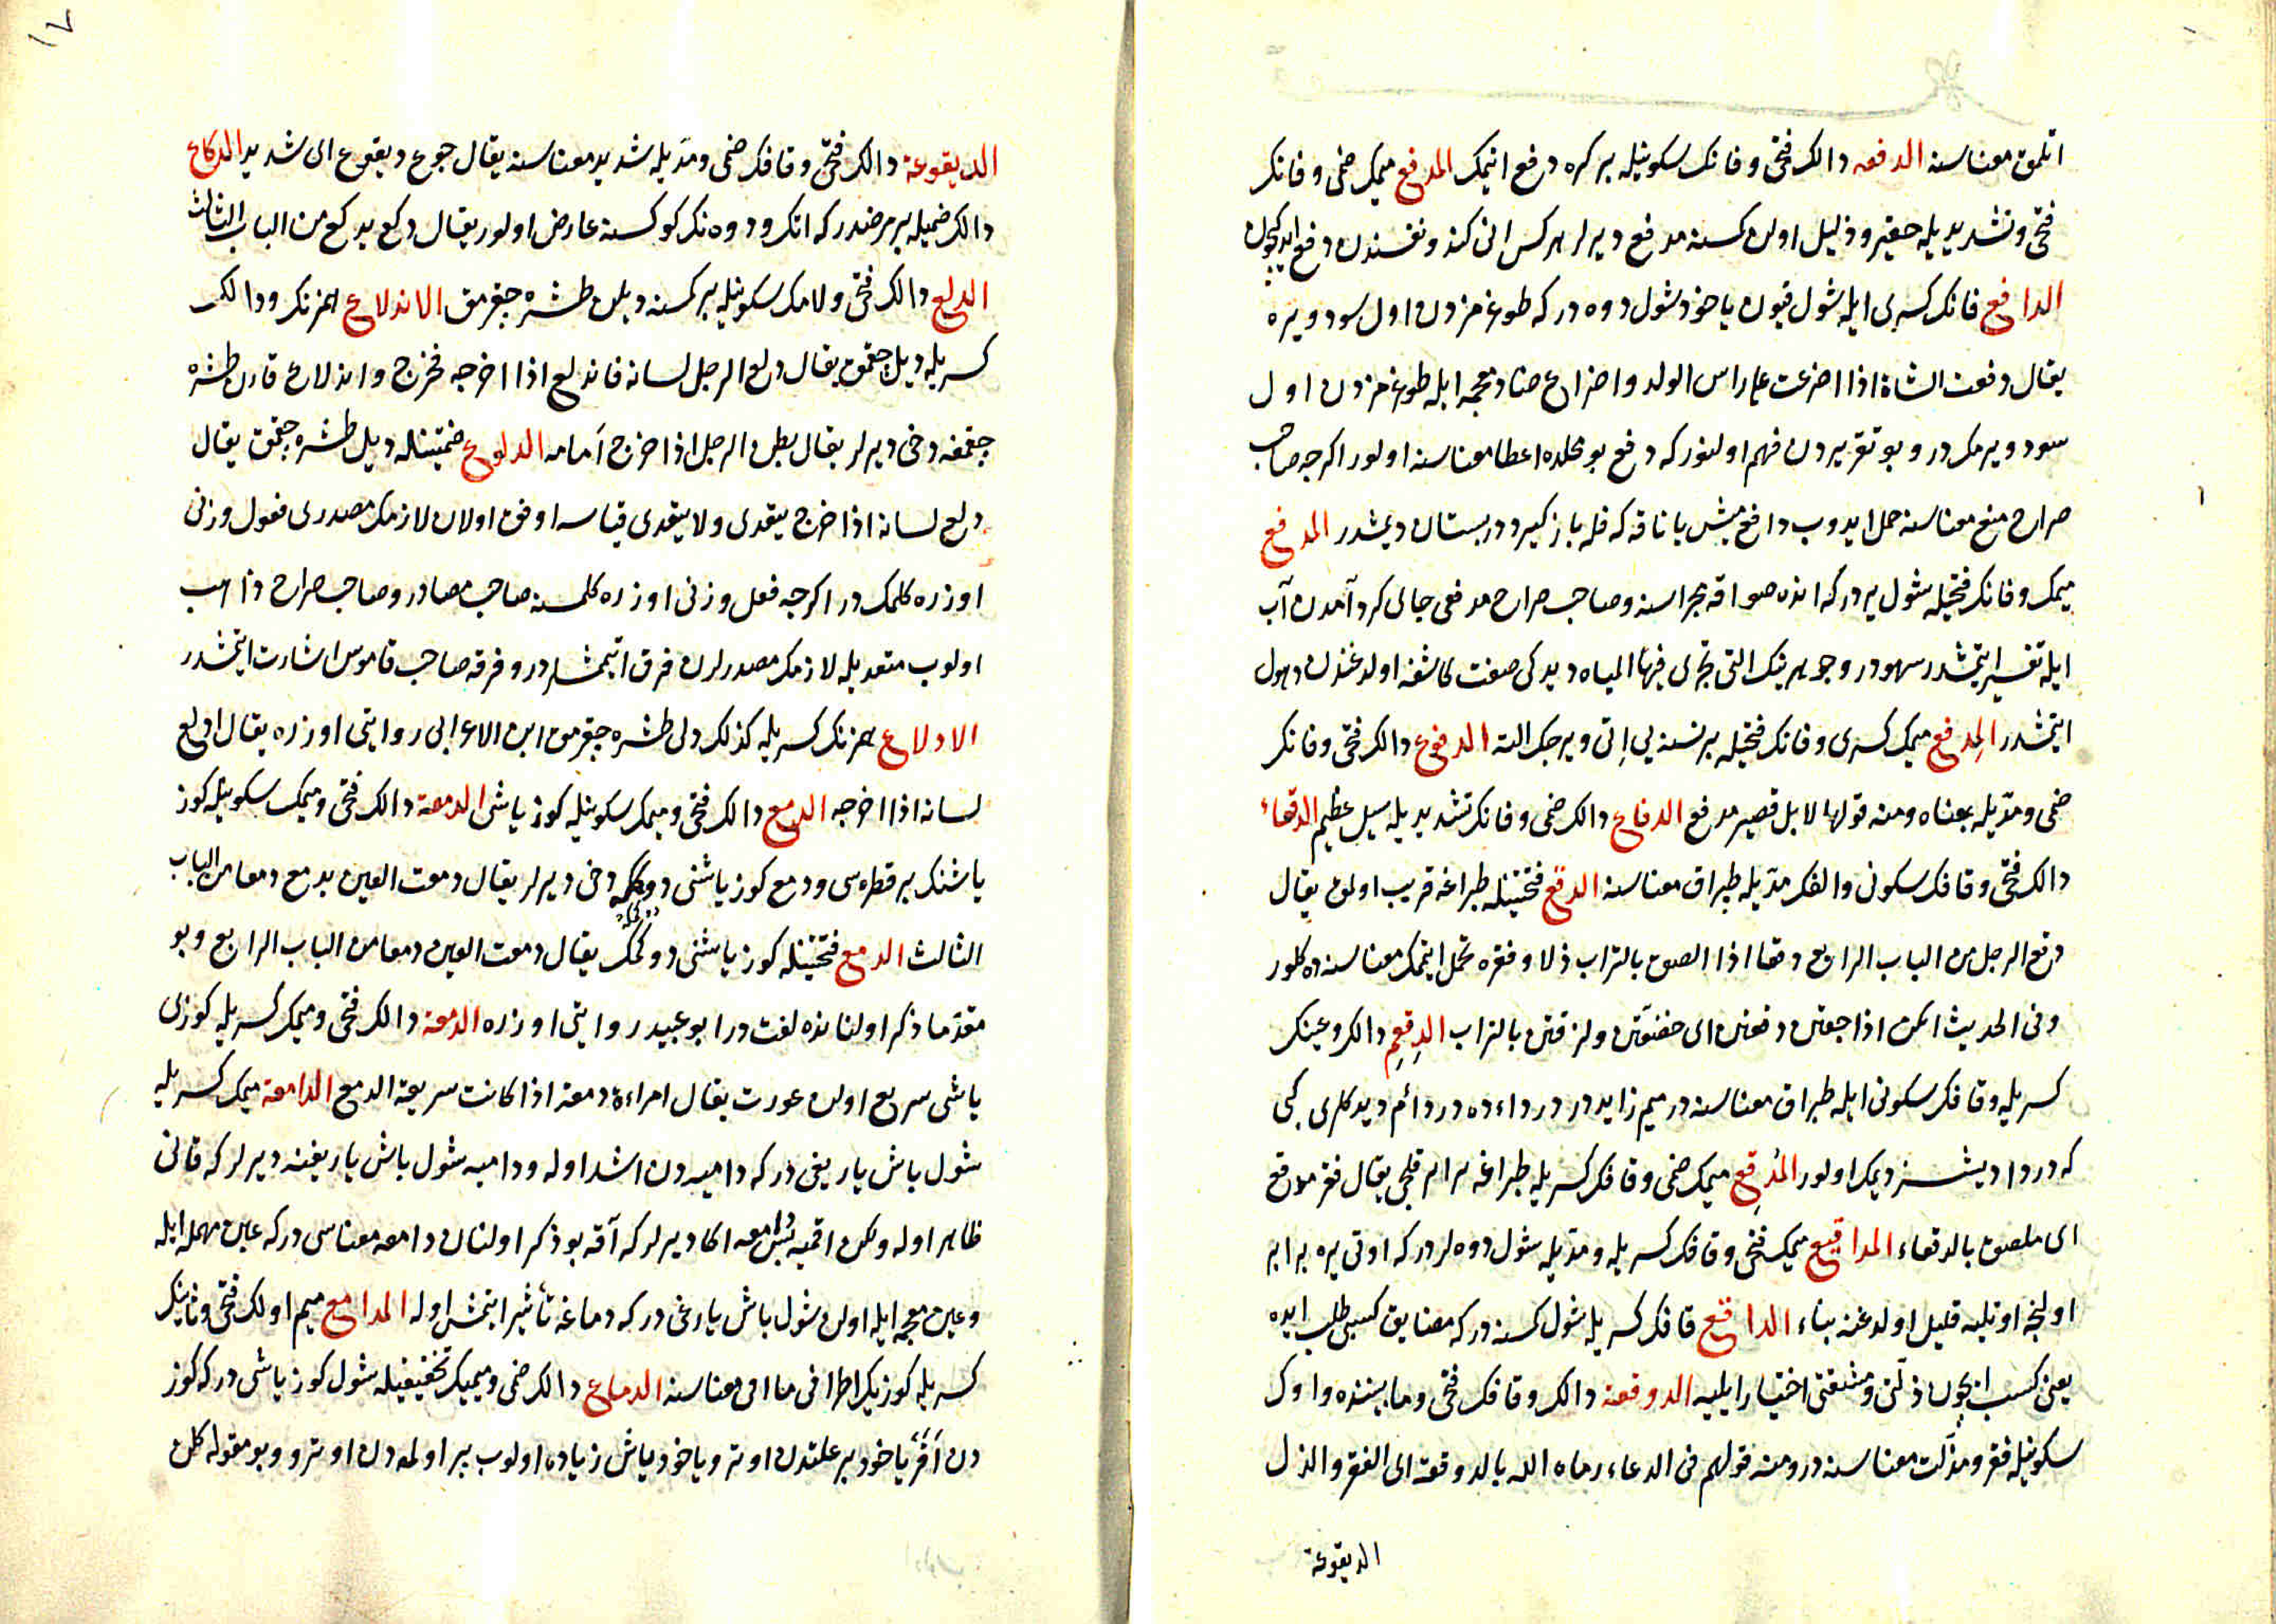 اتلمق معناسنه الدفعه دالك فتحى وفانك سكونيله بر كره دفع اتيمك المدفع ميمك ضمى وفانك
فتحى وتشديديله حقير وذليل اولن كمسنه مدفع ديرلر هر كس انى كندو نفسندن دفع ايدكيچون
الدافع فانك كسرى ايله شول قيون ياخود شول دوه در كه طوغمزدن اول سود ويره
يقال دفعت الشاة اذا اضرعت على راس الولد واضراع ضاد معجمه ايله طوغمزدن اول
سود ويرمكدر وبو تقريردن فهم اولنور كه دفع بو محلده اعطا معناسنه اولور اكرچه صاحب
صراح منع معناسنه حمل ايدوب دافع ميش يا ناقه كه فله باز كيرد در بستان ديمشدر المدفع
ميمك وفانك فتحيله شول يردر كه انده صو اقه مجراسنه وصاحب صراح مدفعى جاى كرد آمدن آب
ايله تفسير ايتمشدر سهودر وجوهرينك التى تجرى فيها المياه ديدكى صفت كاشفه اولدغندن ذهول
ايتمشدر المِدفع ميمك كسرى وفانك فتحيله بر نسنه يى اتى ويرجك الت الدفوع دالك فتحى وفانك
ضمى ومدّيله بمعناه ومنه قولها لا بل قصير مدفع الدفاع دالك ضمى وفانك تشديديله سيل عظيم الدقعاء
دالك فتحى وقافك سكونى والفك مدّيله طپراق معناسنه الدقع فتحتينله طپراغه قريب اولمق يقال
دقع الرجل من الباب الرابع دقعا اذا الصق بالتراب ذلا وفقره تحمل ايتمك معناسنه ده كلور
وفى الحديث انكن اذا جعتن دقعتن اى خضعتن ولزقتن بالتراب الدِقعِم دالك وعينك
كسريله وقافك سكونى ايله طپراق معناسنه در ميم زايددر درداءده دردائم ديدكلرى كبى
كه دردا ديشسز ديمك اولور المُدقِع ميمك ضمى وقافك كسريله طپراغه برابر قلجى يقال فقر مدقع
اى ملصق بالدقعاء المداقيع ميمك فتحى وقافك كسريله ومدّيله شول دوه لردر كه اوتى يره برابر
اولنجه اوتليه قليل اولدغنه بناء الداقع قافك كسريله شول كمسنه در كه مضايق كسبى طلب ايده
يعنى كسب ايچون ذلّتى ومشقتى اختيار ايليه الدوقعة دالك وقافك فتحى وما بيننده واوك
سكونيله فقر ومذلّت معناسنه در ومنه قولهم فى الدعاء رماه الله بالدوقعة اى الفقر والذل
الديقوعة
١٧
الديقوعة دالك فتحى وقافك ضمى ومدّيله شديد معناسنه يقال جوع ديقوع اى شديد الدكاع
دالك ضميله بر مرضدر كه اتك ودوه نك كوكسنه عارض اولور يقال دكع يدكع من الباب الثالث
الدلع دالك فتحى ولامك سكونيله بر كمسنه ديلن طشره چقرمق الاندلاع همزنك ودالك
كسريله ديل چقمق يقال دلع الرجل لسانه فاندلع اذا اخرجه فخرج واندلاع قارن طشره
چقمغه دخى ديرلر يقال بطن الرجل اذا خرج امامه الدلوع ضمتينله ديل طشره چقمق يقال
دلع لسانه اذا خرج يتعدى ولا يتعدى قياسه اوفق اولان لازمك مصدرى فعول وزنى
اوزره كلمكدر اكرچه فعل وزنى اوزره كلمسنه صاحب مصادر وصاحب صراح ذاهب
اولوب متعديله لازمك مصدرلرن فرق اتيمشلردر وفرقه صاحب قاموس اشارت ايتمشدر
الادلاع همزنك كسريله كذلك دلى طشره چقرمق ابن الاعرابى روايتى اوزره يقال ادلع
لسانه اذا اخرجه الدمع دالك فتحى وميمك سكونيله كوز ياشى الدمعة دالك فتحى وميمك سكونيله كوز
ياشنك بر قطره سى ودمع كوز ياشنى دوكمكه دخى ديرلر يقال دمعت العين يدمع دمعا من الباب
الثالث الدمع فتحتينله كوز ياشنى دوكمك يقال دمعت العين دمعا من الباب الرابع وبو
مقدّما ذكر اولنانده لغت در ابو عبيد روايتى اوزره الدمعة دالك فتحى وميمك كسريله كوزى
ياشى سريع اولن عورت يقال امراءة دمعة اذا كانت سريعة الدمع الدامعة ميمك كسريله
شول باش ياريغى در كه داميه دن اشد اوله وداميه شول باش ياريغنه ديرلر كه قانى
ظاهر اوله ولكن اقميه پس دامعه اكا ديرلر كه آقه بو ذكر اولنان دامعه معناسى در كه عين مهمله ايله
وعين معجمه ايله اولن شول باش يارغى در كه دماغه تأثير ايتمش اوله المدامع ميم اولك فتحى وثانينك
كسريله كوزيك اطرافى مااقى معناسنه الدماع دالك ضمى وميميك تخفيفيله شول كوز ياشى در كه كوز
دن آقر ياخود بر علتدن اوترو ياخود ياش زياده اولوب پير اولمه دن اوترو وبو مقوله كلن